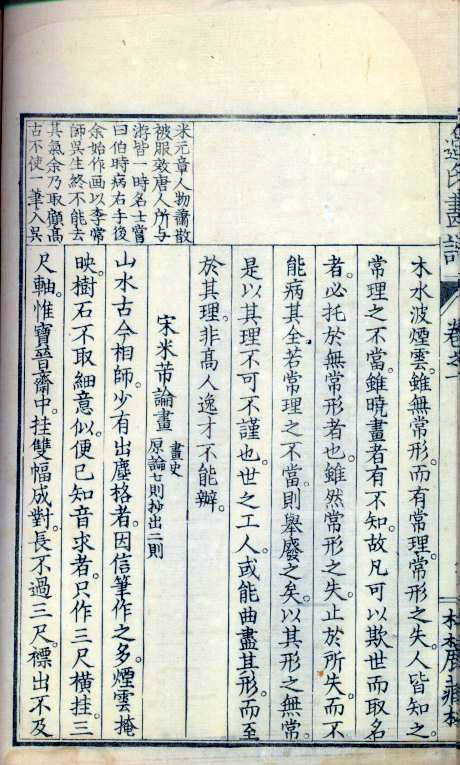 氏畫譜
卷之一
木水波煙雲。雖無常形。而有常理。常形之失。人皆知之。
常理之不當。雖曉畫者有不知。故凡可以欺世而取名
者。必托於無常形者也。雖然常形之失。止於所失。而不
能病其全。若常理之不當。則舉廢之矣。以其形之無常。
是以其理不可不謹也。世之工人。或能曲盡其形。而至
於其理。非高人逸才不能辦。
宋米芾論畫
畫史
原論七則抄出二則
山水古今相師。少有出塵格者。因信筆作之。多煙雲掩
映。樹石不取細意。似便已知音求者。只作三尺橫挂。三
尺軸。惟寶晉齋中。挂雙幅成對。長不過三尺。褾出不及
米元章人物蕭散
被服效唐人所與
游皆一時名士嘗
曰伯時病右手後
余始作画以李常
師吳生終不能去
其氣余乃取顧高
古不使一筆入吳